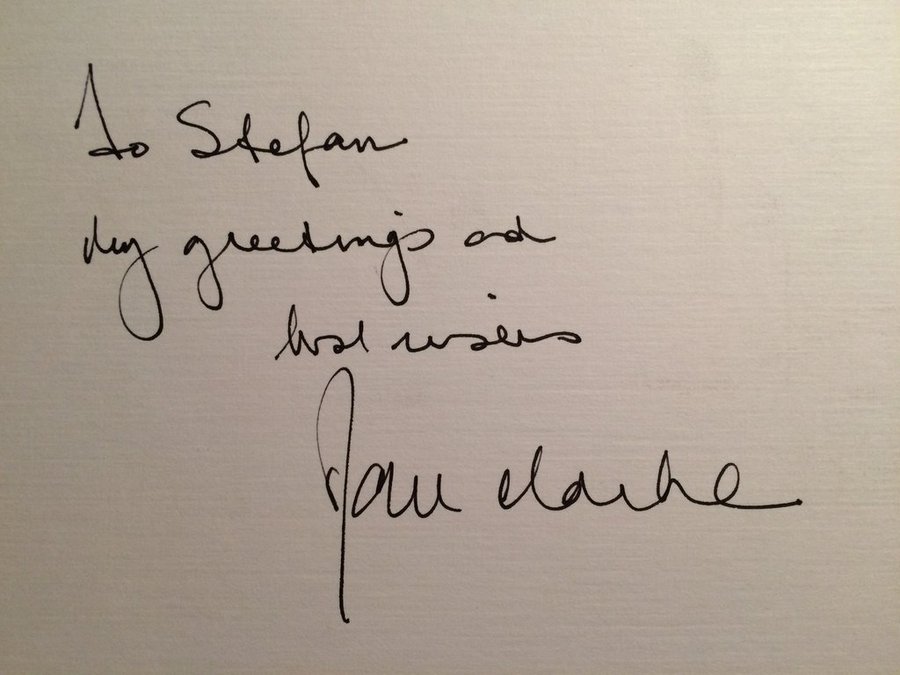 To Stefan
my greetings and
best wishes
Paul Clarke